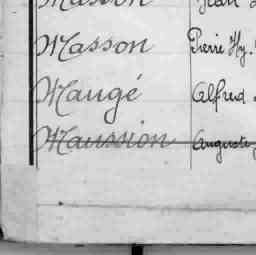 Masson Pierre Hy.
Maugé Alfred
Maussion Auguste